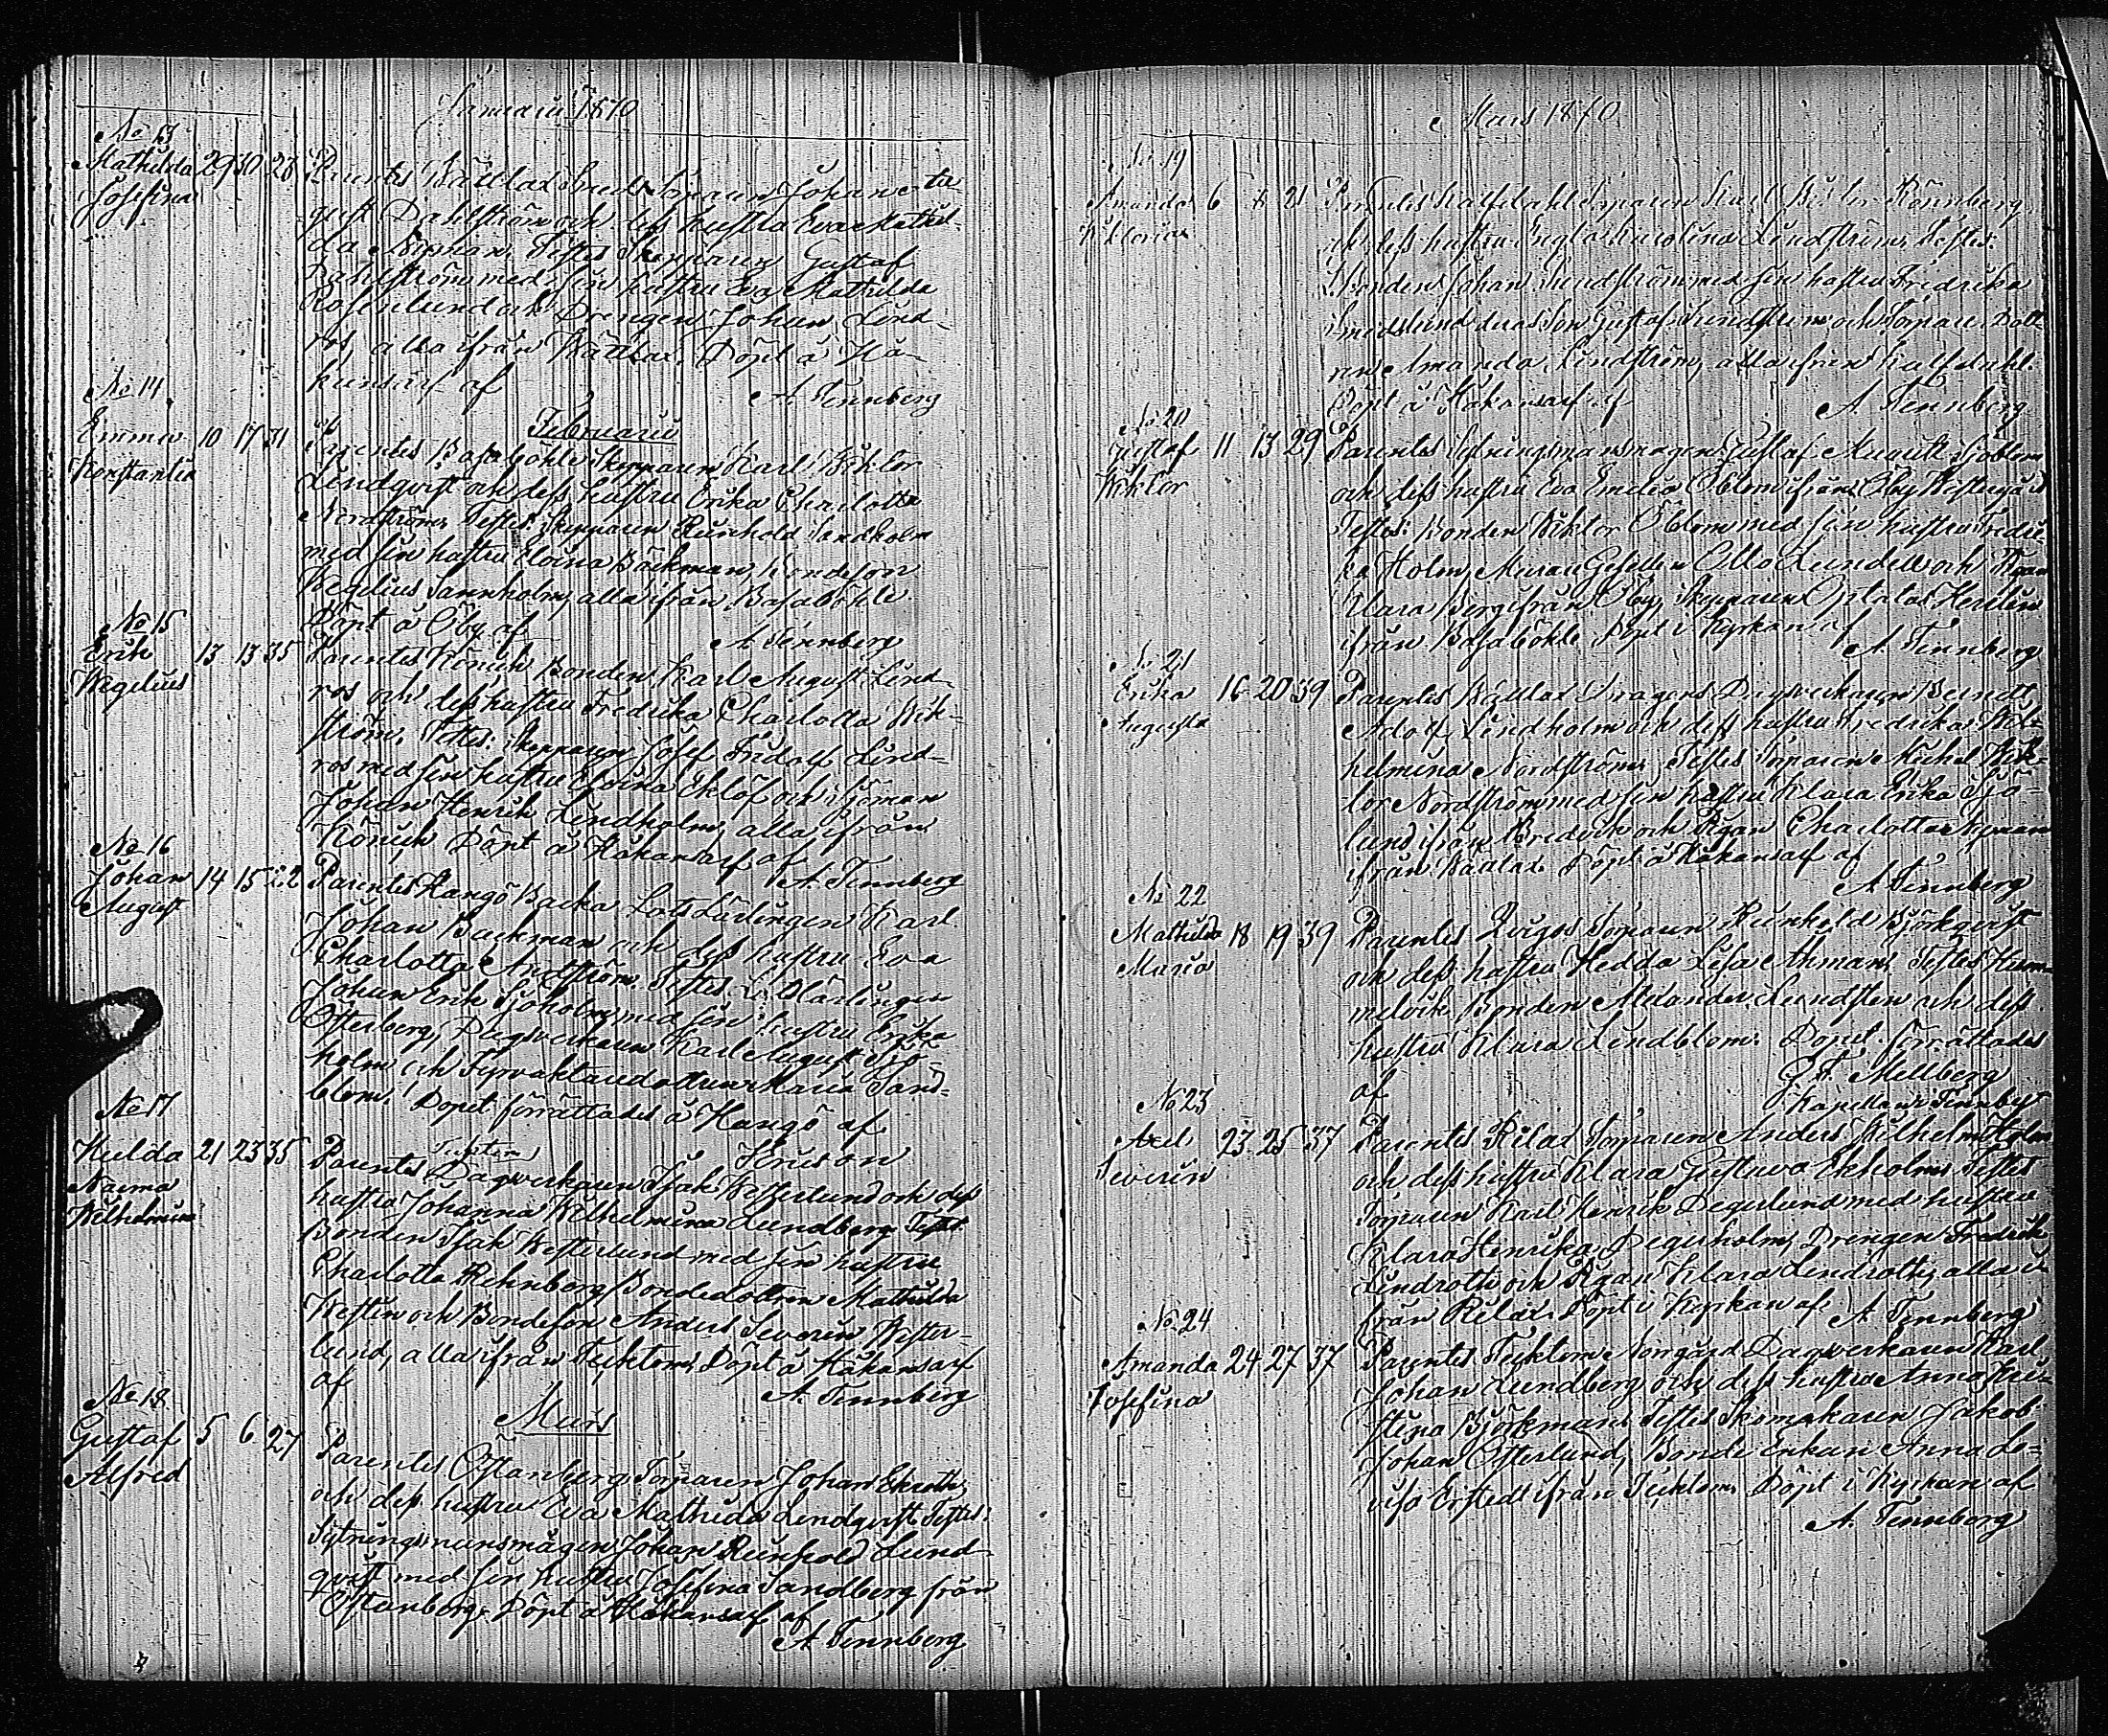 Januarii 1870
No 13
Mathilda 29 30 28 Parentes Wättlax Smeds Torparen Johan Au-
Josefina gust Dahlström och dess hustru Eva Mathil-
da Nyman, Testes Skepparen Gustaf
Dahlström med sin hustru Eva Mathilda
Rosenlund och Drengen Johan Lind-
ros, alla ifrån Wättlax. Döpt å Hå-
kansarf af
A. Tennberg
Februarii
No 14
Emma 10 17 31 Parentes Basaböhle Skepparen Karl Wiktor
Konstantia Lindqvist och dess hustru Erika Charlotta
Nordström, Testes: Skepparen Reinhold Sandholm
med sin hustru Elvina Bäckman, Bondeson
Wegelius Sannholm, alla ifrån Basaböhle.
Döpt å Öby af
A. Tennberg
No 15
Erik 13 13 35 Parentes Könick Bonden Karl August Lind-
Wegelius ros och dess hustru Fredrika Charlotta Wik-
ström, Testes: Skepparen Josef Fridolf Lind-
ros med sin hustru Elvina Eklöf och Sjöman
Johan Henrik Lindholm, alla ifrån
Könick Döpt å Håkansarf af
A. Tennberg
No 16
Johan 14 15 22 Parentes Hangö Backa Lots Lärlingen Karl
August Johan Backman och dess hustru Eva
Charlotta Andström Testes Lärlingen
Johan Erik Sjöholm med sin hustru Erika
Österberg, Dagsverkaren Karl August Sjö-
holm och Fyrvaktaredottren Maria Sand-
blom. Dopet förrättades å Hangö af
Heurson
No 17
Hulda 21 23 35 Parentes Dagsverkaren Isak Westerlund och dess
Naema hustru Johanna Wilhelmina Lundberg Testes
Wilhelmina Bonden Isak Westerlund med sin hustru
Charlotta Rehnberg, Bondedottren Mathilda
Westen och Bondeson Anders Severin Wester-
lund, alla ifrån Tecktom, Döpt å Håkansarf
af
A. Tennberg
Mars
No 18
Gustaf 5 6 27 Parentes Östanberg Torparen Johan Ekroth
Alfred och dess hustru Eva Mathilda Lindqvist Testes:
Sytningsmansmågen Johan Reinhold Lund-
qvist med sin hustru Josefina Sandberg från
Östanberg, Döpt å Håkansarf af
A. Tennberg
Mars 1870
No 19
Amanda 6 8 21 Parentes Kalfdahl Torparen Karl Wiktor Rönnberg
Wiktoria och dess hustru Engla Karolina Lindström, Testes:
Bonden Johan Lindström med sin hustru Fredrika
Smedslund deras Son Gustaf Lindström och Torpare Dott-
ren Amanda Lindström, alla ifrån Kalfdahl.
Döpt å Håkansarf af
A. Tennberg
No 20
Gustaf 11 13 29 Parentes Sytningsmansmågen Gustaf Mauritz Sjöblom
Wiktor och dess hustru Eva Emelia Öblom ifrån Öby Westergård
Testes: Bonden Wiktor Öblom med sin hustru Fredri-
ka Holm, Murare Gesellen Otto Lundell och Pigan
Klara Berg ifrån Öby, Skepparen Optatus Herlin
ifrån Basaböhle. Döpt i Kyrkan af
A. Tennberg
No 21
Erika 16 20 39 Parentes Wättlax Dragons Dagsverkaren Berndt
Augusta Adolf Lindholm och dess hustru Fredrika Wil-
helmina Nordström, Testes Torparen Mickel Wik-
tor Nordström med sin hustru Klara Erika Sjö-
lund ifrån Bredvik och Pigan Charlotta Nyman
ifrån Wättlax. Döpt å Håkansarf af
A. Tennberg
No 22
Mathilda 18 19 39 Parentes Torparen Reinhold Björkqvist
Maria och dess hustru Hedda Lisa Åhman, Testes Hum-
melvik Bonden Alexander Lundsten och dess
hustru Klara Lindblom. Dopet förrättades
af Mellberg
Kapellan i Tennby
No 23
Axel 23 25 37 Parentes Rilax Torparen Anders Wilhelm Holm
Severin och dess hustru Klara Gustava Ekholm, Testes
Torparen Karl Henrik Degerlund med hustru
Klara Henrika Degerholm, Drengen Fredrik
Lindroth och Pigan Klara Lindroth, alla i-
från Rilax. Döpt i Kyrkan af
A. Tennberg
No 24
Amanda 24 27 37 Parentes Tecktom Norrgård Dagsverkaren Karl
Josefina Johan Lundberg och dess hustru Anna Kri-
stina Björkman, Testes Skomakaren Jakob
Johan Österlund, Bonde Enkan Anna Lo-
visa Erstedt ifrån Tecktom. Döpt i Kyrkan af
A. Tennberg